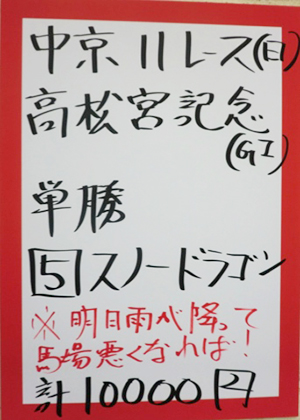 中京11レース(日)
高松宮記念
(GI)
単勝
5スノードラゴン
※明日雨が降って
馬場悪くなれば!
計10000円